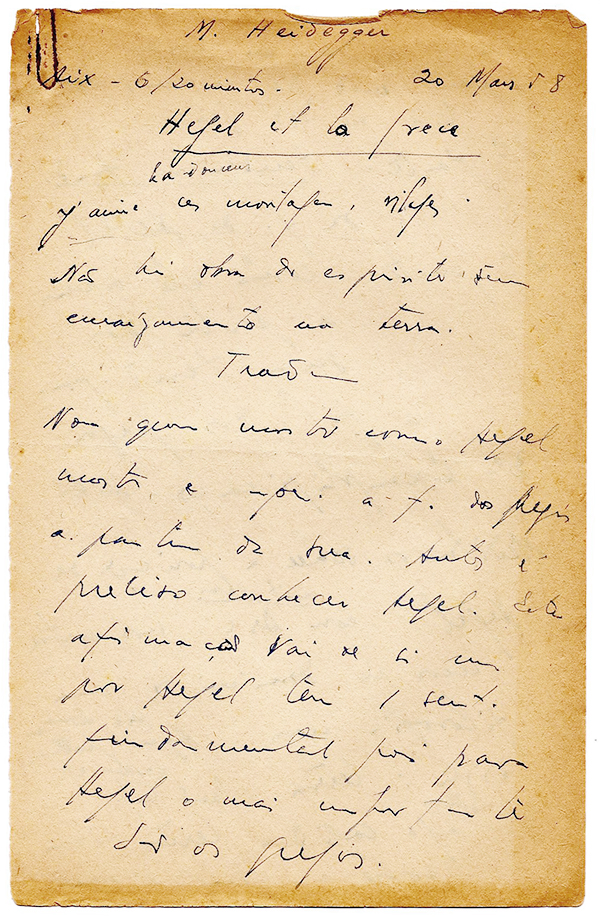 M. Heidegger
Aix – 6/20 minutos. 20 Mars 58
Hegel et la Grece
La douceur
J'aime ces montagnes,
Não há obra do espirito sem
enraizamento na terra.
Trad
Nom quon mostrar como Hegel
mostr e a f. dos gregos
a partir da sua. Antes é
preciso conhecer Hegel. Esta
afirmação Vai se
por Hegel tem 1 sent.
fundamental pois para
Hegel o mais importante
São os gregos.